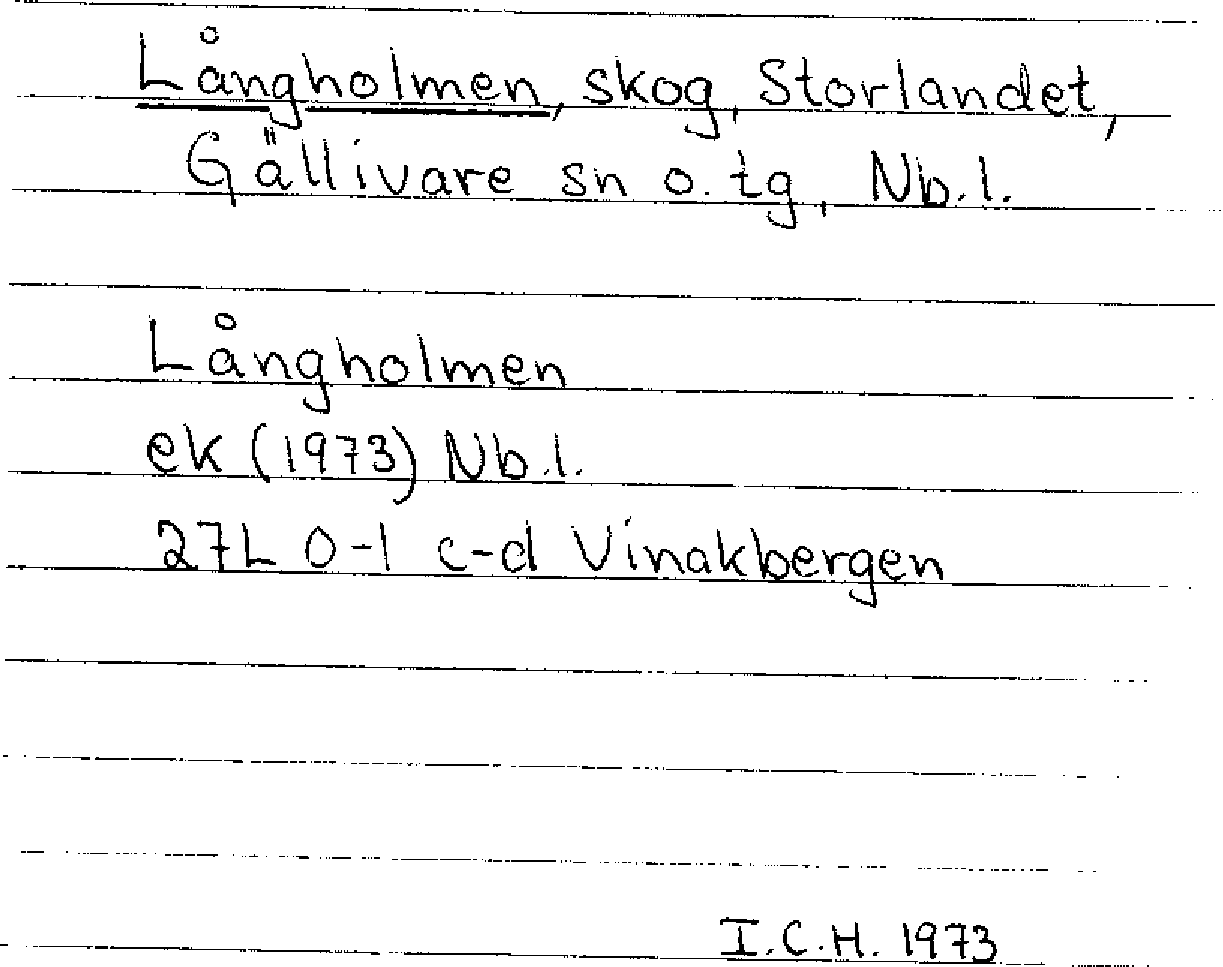 Långholmen, skog, Storlandet,
Gällivare sn o. tg, Nb.l.
Långholmen
ek (1973) Nb.l.
27L 0-1 c-d Vinakbergen
I.C.H. 1973